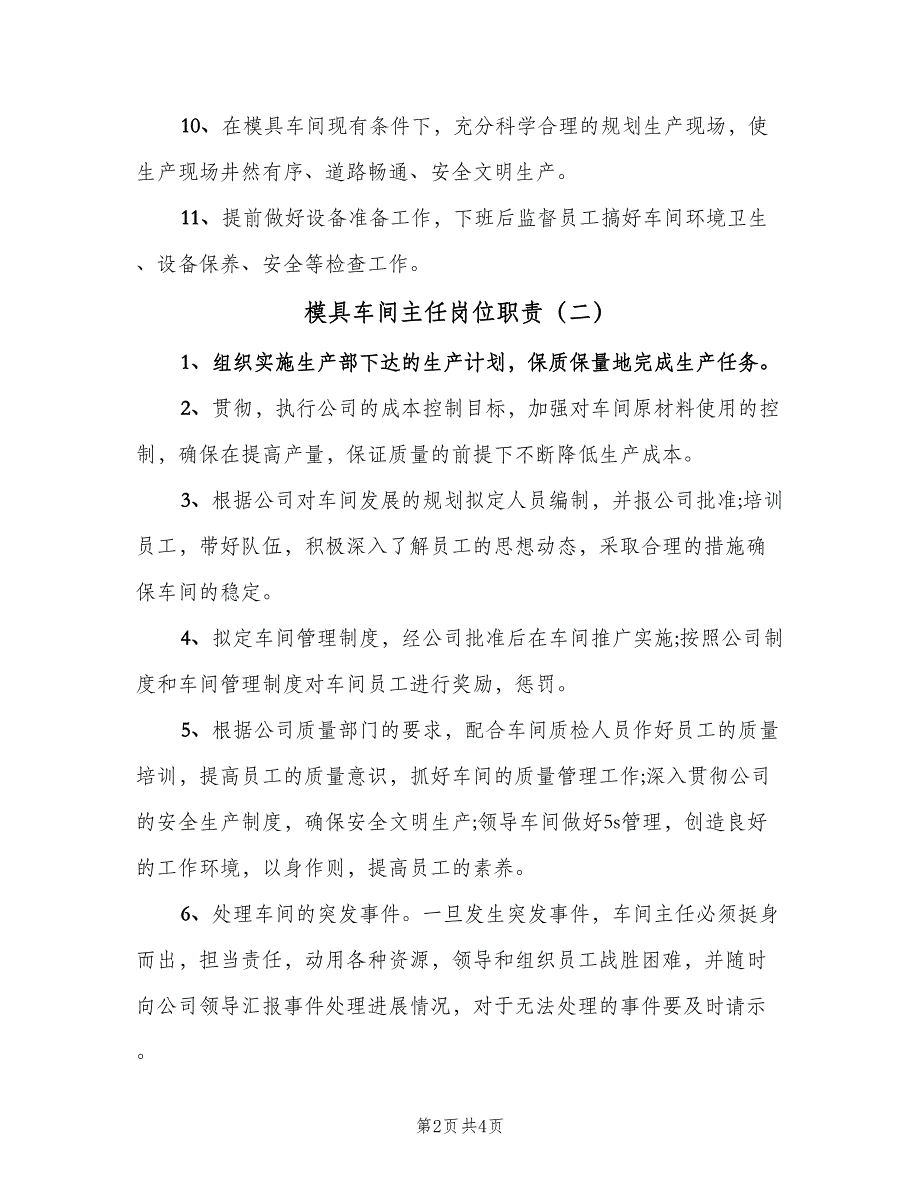 10、在模具车间现有条件下，充分科学合理的规划生产现场，使
生产现场井然有序、道路畅通、安全文明生产。
11、提前做好设备准备工作，下班后监督员工搞好车间环境卫生
、设备保养、安全等检查工作。
模具车间主任岗位职责（二）
1、组织实施生产部下达的生产计划，保质保量地完成生产任务。
2、贯彻，执行公司的成本控制目标，加强对车间原材料使用的控
制，确保在提高产量，保证质量的前提下不断降低生产成本。
3、根据公司对车间发展的规划拟定人员编制，并报公司批准;培训
员工，带好队伍，积极深入了解员工的思想动态，采取合理的措施确
保车间的稳定。
4、拟定车间管理制度，经公司批准后在车间推广实施;按照公司制
度和车间管理制度对车间员工进行奖励，惩罚。
5、根据公司质量部门的要求，配合车间质检人员作好员工的质量
培训，提高员工的质量意识，抓好车间的质量管理工作;深入贯彻公司
的安全生产制度，确保安全文明生产;领导车间做好5s管理，创造良好
的工作环境，以身作则，提高员工的素养。
6、处理车间的突发事件。一旦发生突发事件，车间主任必须挺身
而出，担当责任，动用各种资源，领导和组织员工战胜困难，并随时
向公司领导汇报事件处理进展情况，对于无法处理的事件要及时请示
。
第2页共4页